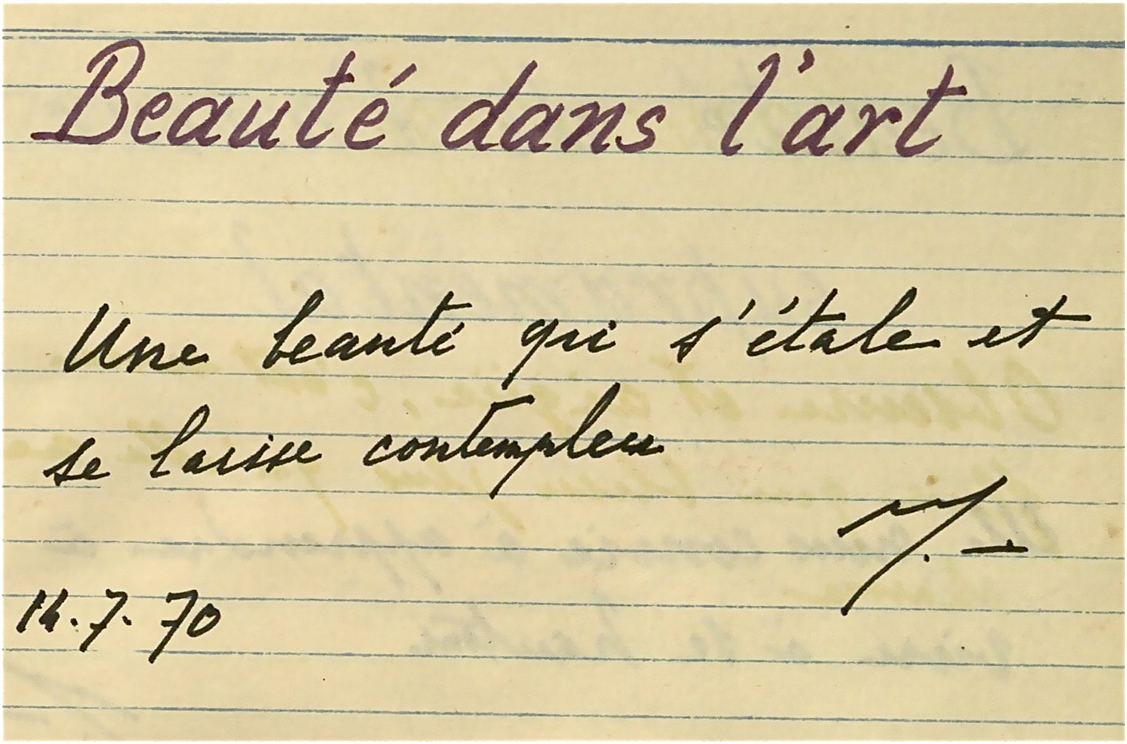 Beauté dans l'art
Une beauté qui s'étale et
se laisse contempler
14.7.70